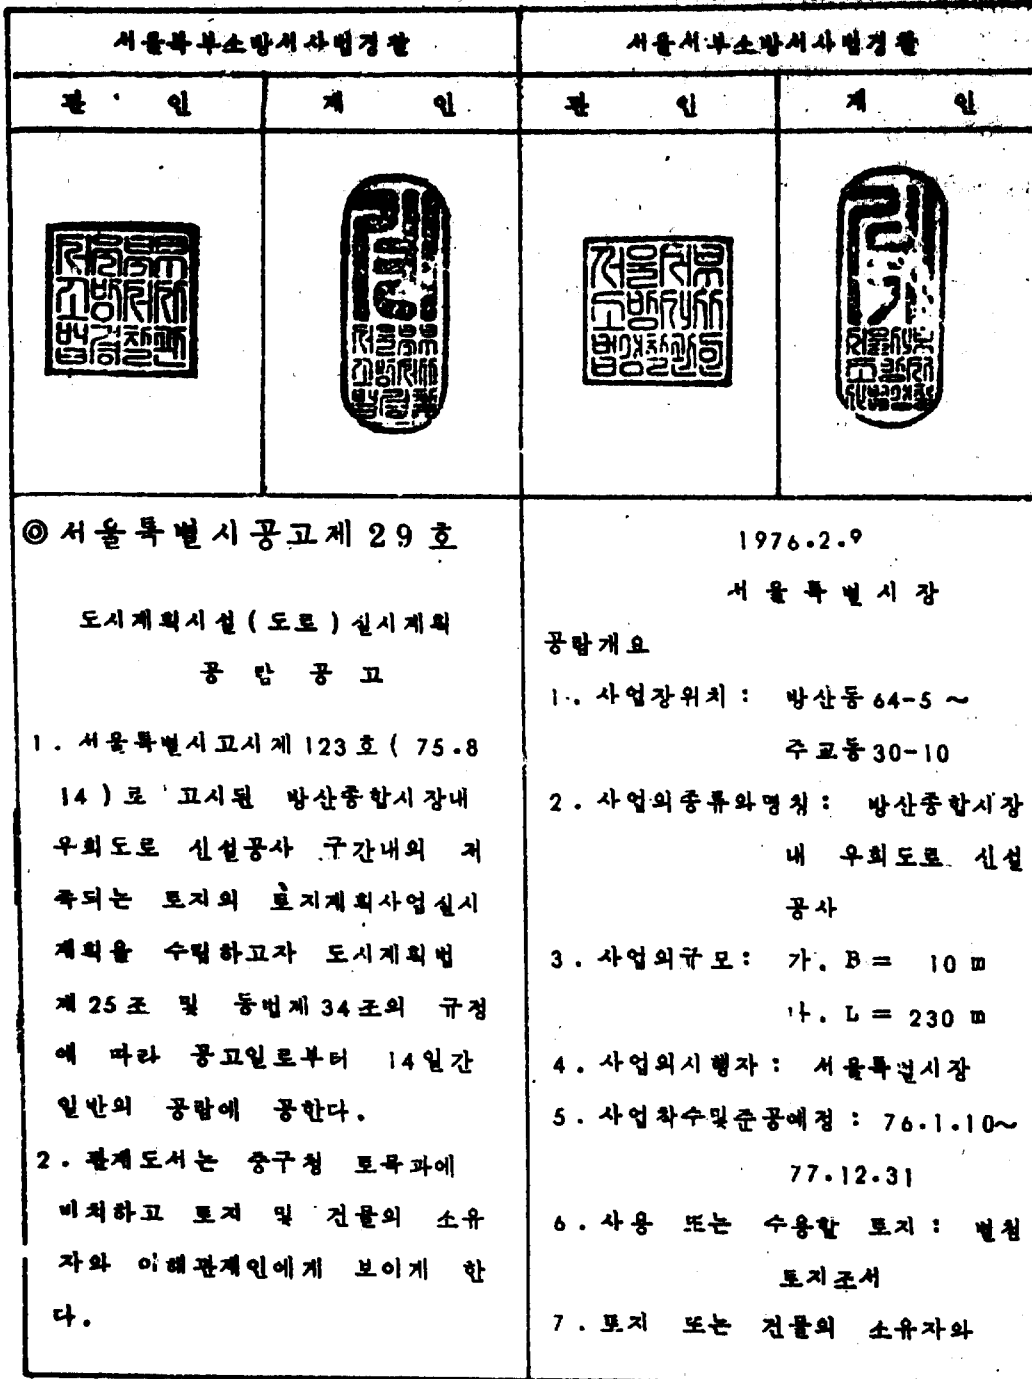 서울북부소방서사법경찰
서울서부소방서사법경찰
관 인
계 인
관 인
계 인
◎서울특별시공고제 29 호
도시계획시설 ( 도로 ) 실시계획
공 람 공 고
1 . 서울특별시고시제 123 호 ( 75.8
14 ) 로 고시된 방산종합시장내
우회도로 신설공사 구간내의 저
촉되는 토지의 토지계획사업실시
계획을 수립하고자 도시계획법
제 25 조 및 동법제 34 조의 규정
에 따라 공고일로부터 14 일간
일반의 공람에 공한다.
2 . 관계도서는 중구청 토목과에
비치하고 토지 및 건물의 소유
자와 이해관계인에게 보이게 한
다.
1976.2.9
서 울 특 별 시 장
공람개요
1 . 사업장위치 : 방산동 64-5 ~
주교동 30-10
2 . 사업의종류와명칭 : 방산종합시장
내 우회도로 신설
공사
3 . 사업의규모 : 가. B = 10 m
나. L = 230 m
4 . 사업의시행자 : 서울특별시장
5 . 사업착수및준공예정 : 76.1.10~
77.12.31
6 . 사용 또는 수용할 토지 : 별첨
토지조서
7 . 토지 또는 건물의 소유자와